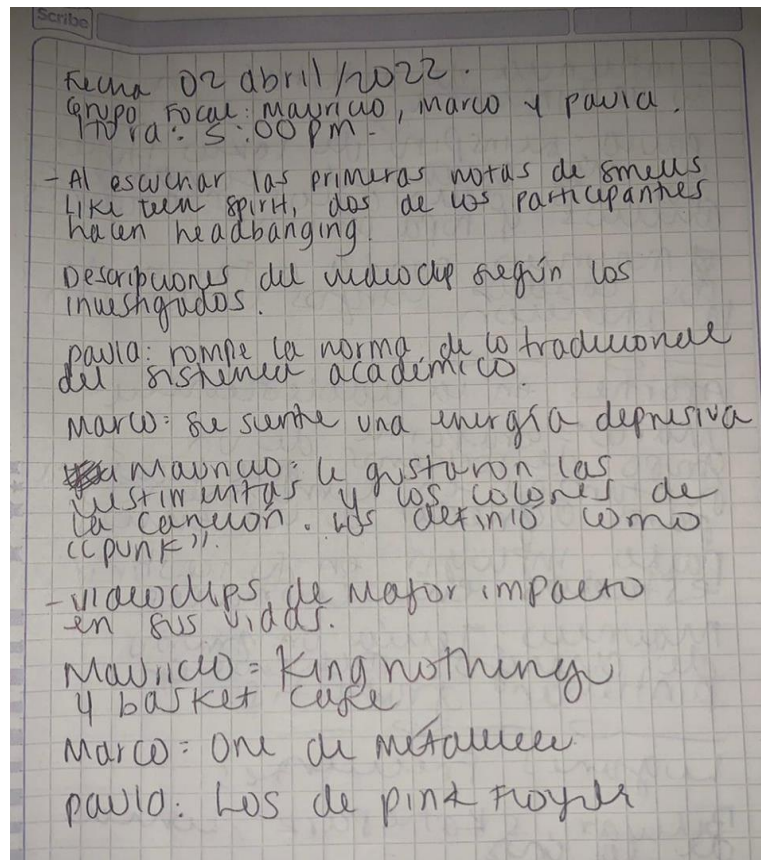 Scribe
Fecha 02 abril/2022.
Grupo Focal: Mauricio, Marco y paula.
Hora: 5:00 pm.
- Al escuchar las primeras notas de smells
Like teen spirit, dos de los participantes
hacen headbanging.
Descripciones del videoclip según los
investigados.
paula: rompe la norma de lo tradicional
del sistema académico.
Marco: se siente una energía depresiva
Mauricio: le gustaron las
vestimentas y los colores de
la canción. Los definió como
"punk".
- videoclips de mayor impacto
en sus vidas.
Mauricio = King nothing
y basket case
Marco: One de metallica
paula: Los de pink Floyd